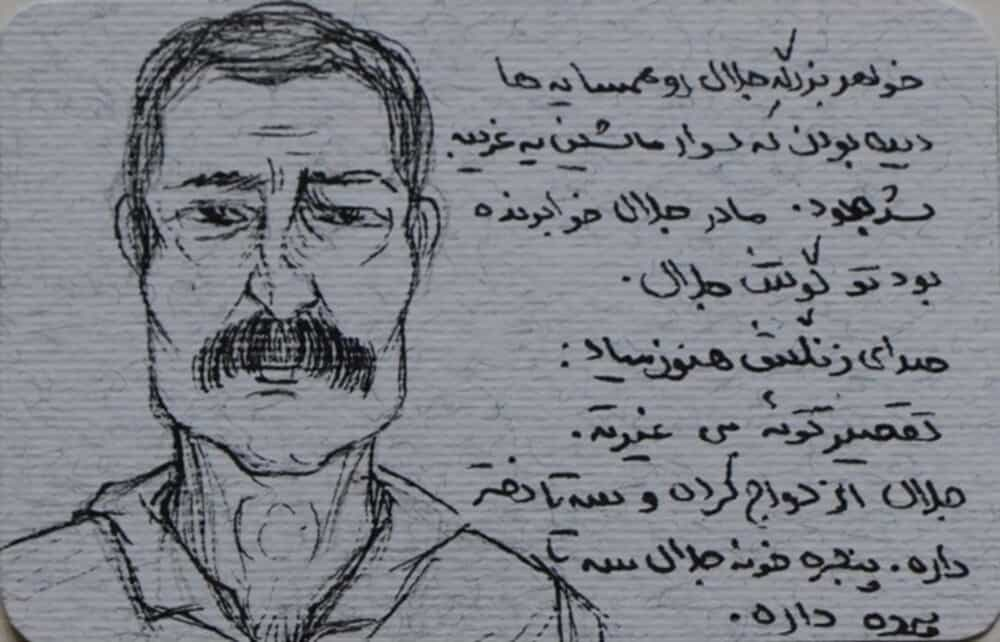 خواهر بزرگه جلال رو همسایه ها
دیده بودن که سوار ماشین یه غریبه
شده بود. مادر جلال خوابونده
بود تو گوشش جلال.
صدای زنگش هنوز میاد:
تقصیر توئه بی غیرته.
جلال ازدواج کرده و سه تا دختر
داره. پنجره خونه جلال سه تا
پرده داره.